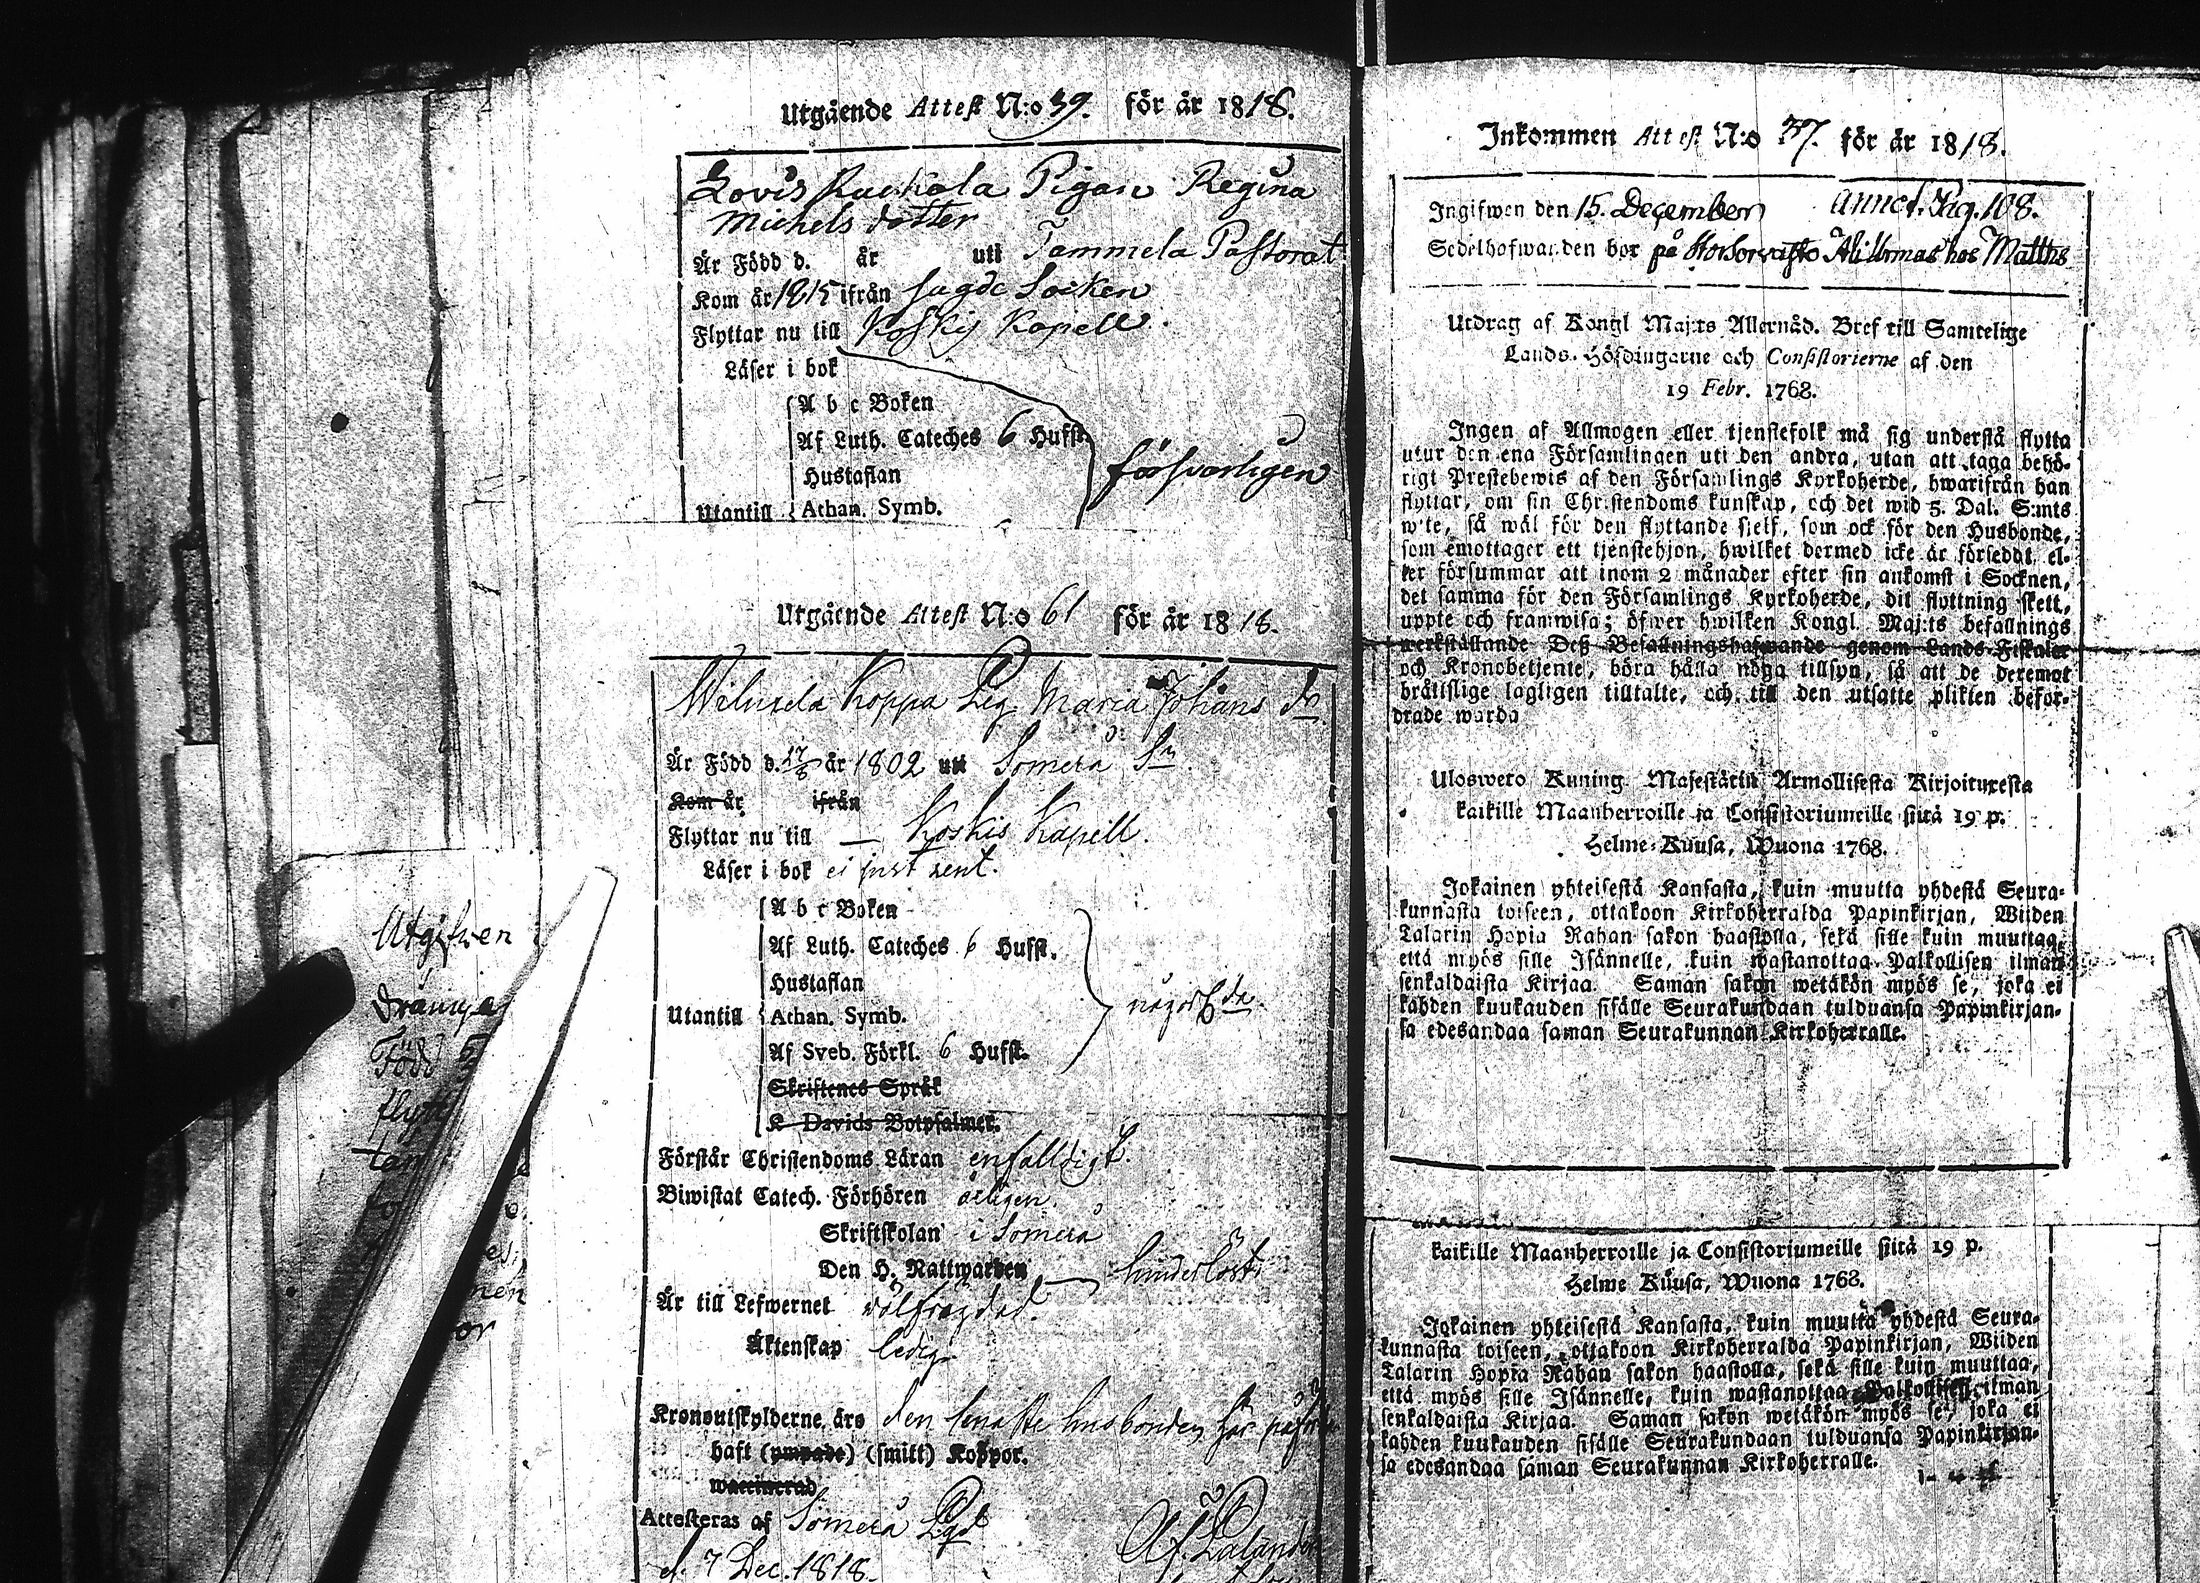 Utgående Attest N:o 39. för år 1818.
Lovis Pigan Regina
Michels dotter
Är Född d. år uti Tammela Pastorat
Kom år 1815 ifrån Socken
Flyttar nu till Koskis Kapell.
Läser i bok
A b c Boken
Af Luth. Cateches 6 Hufst.
Hustaflan
försvarligen
Utantill Athan. Symb.
Utgående Attest N:o 61 för år 1818.
Koppa Pig. Maria Johans dr
Är Född d. 17/8 år 1802 uti Somero Sn
Kom år ifrån
Flyttar nu till — Koskis Kapell.
Läser i bok ej just rent.
A b c Boken
Af Luth. Cateches 6 Hufst.
Hustaflan
Utantill Athan. Symb.
Af Sveb. Förkl. 6 Hufst.
Skriftenes Språk
K Davids Botpsalmer.
Förstår Christendoms Läran enfalldigt
Biwistat Catech. Förhören årligen
Skriftskolan i Somero
Den H. Nattwarden — hinderlöst
Är till Lefwernet wälfrägdad.
Äktenskap ledig
Kronoutskylderne äro den husbonden har
haft (ympade) (smitt) Koppor.
waccinerad
Attesteras af Somero
d. 7 Dec. 1818.
Utgifven
Född
flytt
Inkommen Attest N:o 37. för år 1818.
Ingifwen den 15. December annot. Pag. 108.
Sedelhafwanden bor på hos Matths
Utdrag af Kongl Maj:ts Allernåd. Bref till Samtelige
Lands-Höfdingarne och Consistorierne af den
19 Febr. 1768.
Ingen af Allmogen eller tjenstefolk må sig understå flytta
utur den ena Församlingen uti den andra, utan att taga behö-
rigt Prestebewis af den Församlings Kyrkoherde, hwarifrån han
flyttar, om sin Christendoms kunskap, och det wid 5. Dal. S:mts
wite, så wäl för den flyttande sjelf, som ock för den Husbonde,
som emottager ett tjenstehjon, hwilket dermed icke är försedt, el-
ler försummar att inom 2 månader efter sin ankomst i Socknen,
det samma för den Församlings Kyrkoherde, dit flyttning skett,
uppte och framwisa; öfwer hwilken Kongl. Maj:ts befallnings
werkställande Deß Befallningshafwande genom Lands-Fiskaler
och Kronobetjente, böra hålla nöga tillsyn, så att de deremot
bråttslige lagligen tilltalte, och till den utsatte plikten befor-
drade warda
Ulosweto Kuning. Majestätin Armollisesta Kirjoituxesta
kaikille Maanherroille ja Consistoriumeille siitä 19 p.
Helme-Kuusa, Wuona 1768.
Jokainen yhteisestä Kansasta, kuin muutta yhdestä Seura-
kunnasta toiseen, ottakoon Kirkoherralda Papinkirjan, Wiiden
Talarin Hopia Rahan sakon haastolla, sekä sille kuin muuttaa,
että myös sille Isännelle, kuin wastanottaa Palkollisen ilman
senkaldaista Kirjaa. Saman sakon wetäkön myös se, joka ei
kahden kuukauden sisälle Seurakundaan tulduansa Papinkirjan-
sa edesandaa saman Seurakunnan Kirkoherralle.
kaikille Maanherroille ja Consistoriumeille siitä 19 p.
Helme Kuusa, Wuona 1768.
Jokainen yhteisestä Kansasta, kuin muutta yhdestä Seura-
kunnasta toiseen, ottakoon Kirkoherralda Papinkirjan, Wiiden
Talarin Hopia Rahan sakon haastolla, sekä sille kuin muuttaa,
että myös sille Isännelle, kuin wastanottaa Palkollisen ilman
senkaldaista Kirjaa. Saman sakon wetäkön myös se, joka ei
kahden kuukauden sisälle Seurakundaan tulduansa Papinkirjan-
sa edesandaa saman Seurakunnan Kirkoherralle.